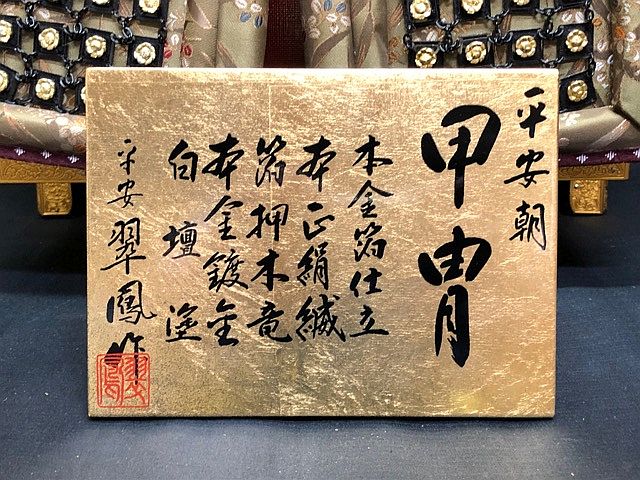 平安朝
甲冑
本金箔仕立
本正絹縅
箔押木竜
本金鍍金
白壇塗
平安翠鳳作